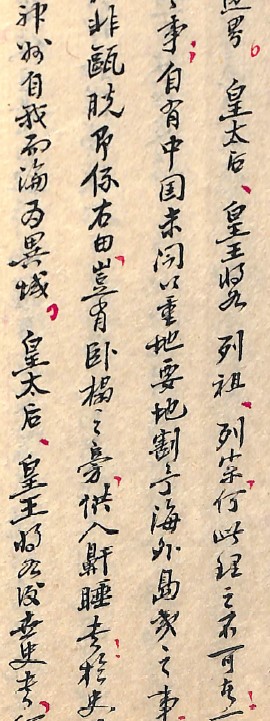 皇太后、皇王將如列祖、列宗何此理之不可者一
之事自有中国未闻以重地要地割予海外島夷之事
非甌脫即係右田豈有卧榻之旁供人鼾睡者於史
神州自我而淪為異域皇太后、皇王將如後世史書